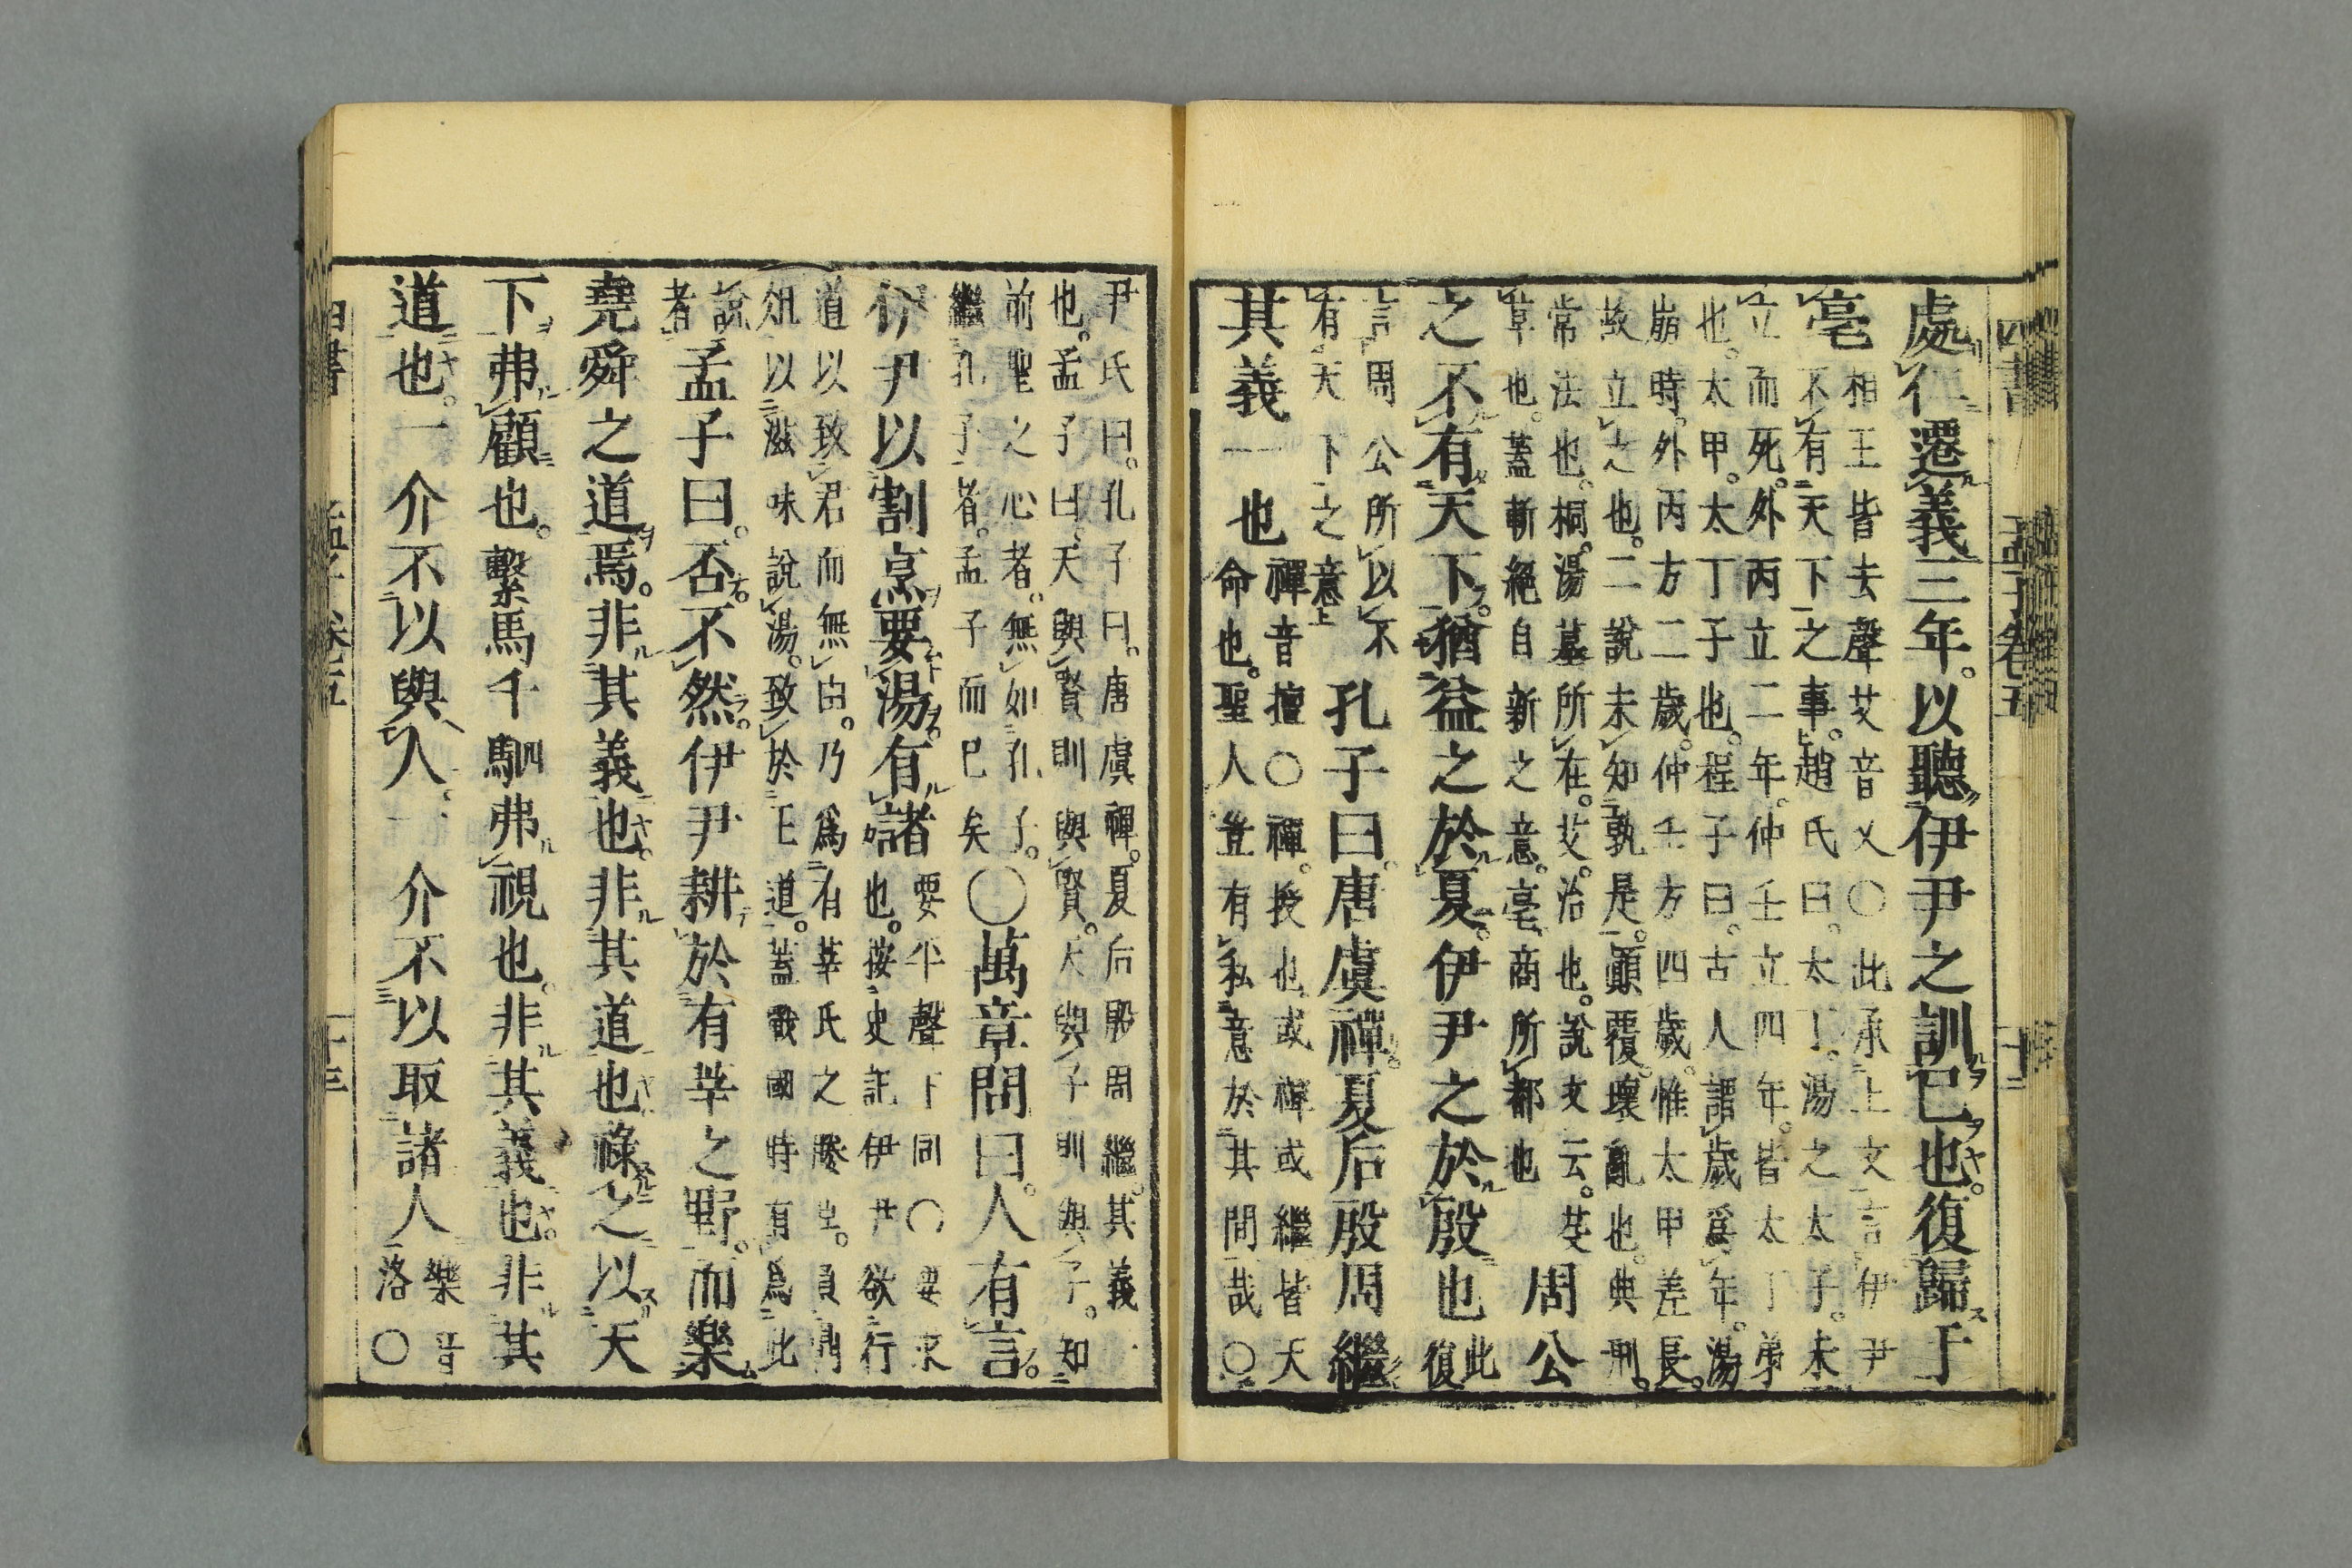 四書 孟子卷五 十二
處仁遷義三年。以聽伊尹之訓已也。復歸于
亳 相王皆去聲艾音乂〇此承上文言伊尹
不有天下之事。趙氏曰。太丁。湯之太子。未
立而死。外丙立二年。仲壬立四年。皆太丁弟
也。太甲。太丁子也。程子曰。古人謂歲爲年。湯
崩時。外丙方二歲。仲壬方四歲。惟太甲差長。
故立之也。二說未知孰是。顚覆。壞亂也。典刑。
常法也。桐。湯墓所在。艾。治也。說文云。芟
草也。蓋斬絕自新之意。亳。商所都也
周公
之不有天下。猶益之於夏。伊尹之於殷也 此復
言周公所以不
有天下之意
孔子曰。唐虞禪。夏后殷周繼
其義一也 禪音擅〇禪。授也。或禪或繼皆天
命也。聖人豈有私意於其間哉〇
尹氏曰。孔子曰。唐虞禪。夏后殷周繼。其義一
也。孟子曰。天與賢則與賢。天與子則與子。知
前聖之心者。無如孔子。
繼孔子者。孟子而已矣
〇萬章問曰。人有言。
伊尹以割烹要湯。有諸 要平聲下同〇要求
也。按史記伊尹欲行
道以致君而無由。乃爲有莘氏之媵臣。負鼎
俎以滋味說湯。致於王道。蓋戰國時有爲此
說者
孟子曰。否。不然。伊尹耕於有莘之野。而樂
堯舜之道焉。非其義也。非其道也。祿之以天
下弗顧也。繫馬千駟弗視也。非其義也。非其
道也。一介不以與人。一介不以取諸人 樂音
洛〇
四書 孟子卷五 十三